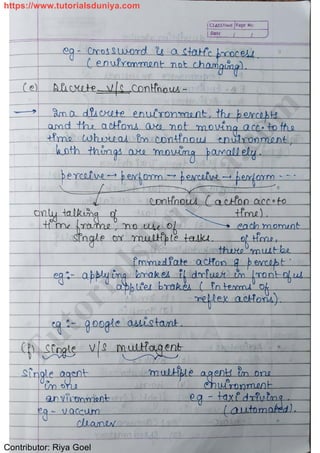 https://www.tutorialsduniya.com
Classmate Page No.
Date / /
eg - crossword is a static process.
(environment not changing).
(e) Discrete V/S Continous -
→ In a discrete environment, the percepts
and the actions are not moving acc. to the
time whereas in continous environment,
both things are moving parallely.
perceive → perform → perceive → perform ...
continous (action acc to
only talking of time).
time frame, no use of → each moment
single or multiple tasks. of time,
there must be
immediate action & percept.
eg:- applying brakes if driver in front of us
applies brakes (in terms of
reflex actions).
eg:- google assistant.
(f) Single V/S Multiagent
Single agent multiple agents in one
in one environment
environment eg - taxi driving.
eg - vaccum (automated).
cleaner
Contributor: Riya Goel